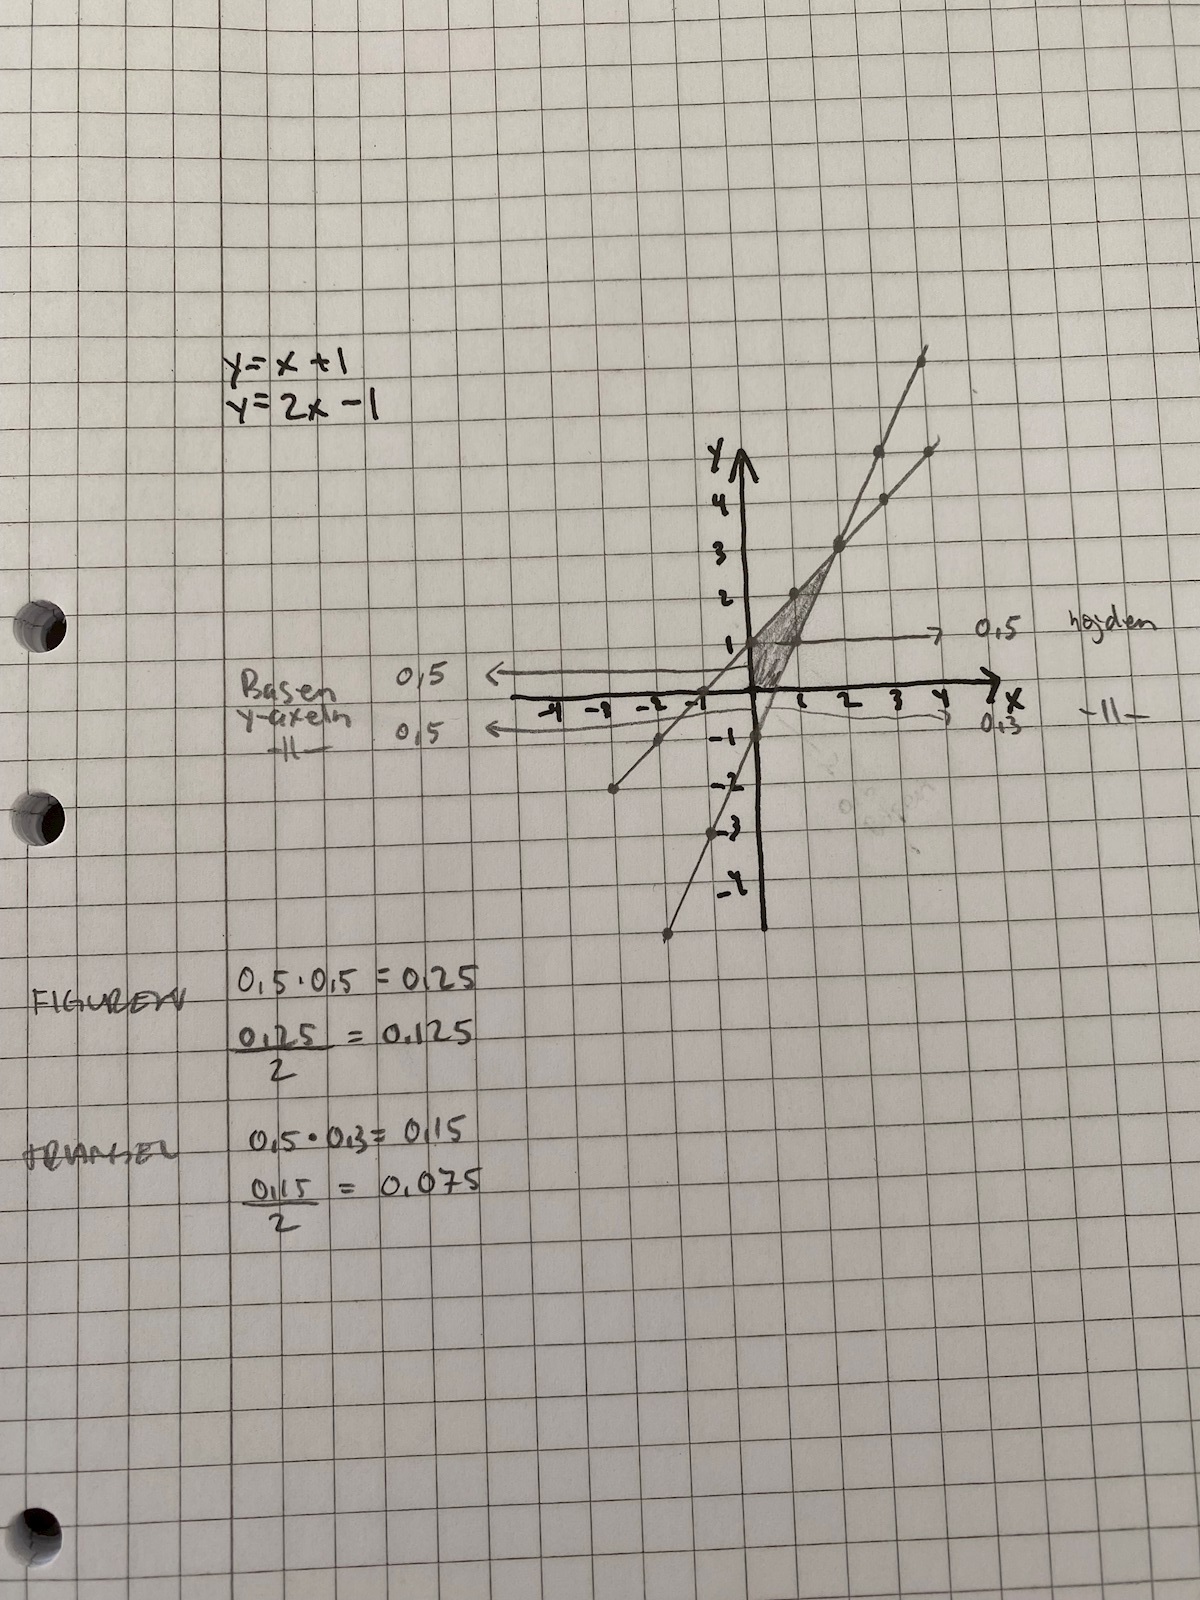 y = x + 1
y = 2x - 1
y
4
3
2
1
-4 -3 -2 -1 1 2 3 4 x
-1
-2
-3
-4
0,5 höjden
0,3 -11-
Basen 0,5
y-axeln
-11- 0,5
FIGUREN 0,5 · 0,5 = 0,25
0,25 / 2 = 0.125
TRIANGEL 0,5 · 0,3 = 0,15
0,15 / 2 = 0,075